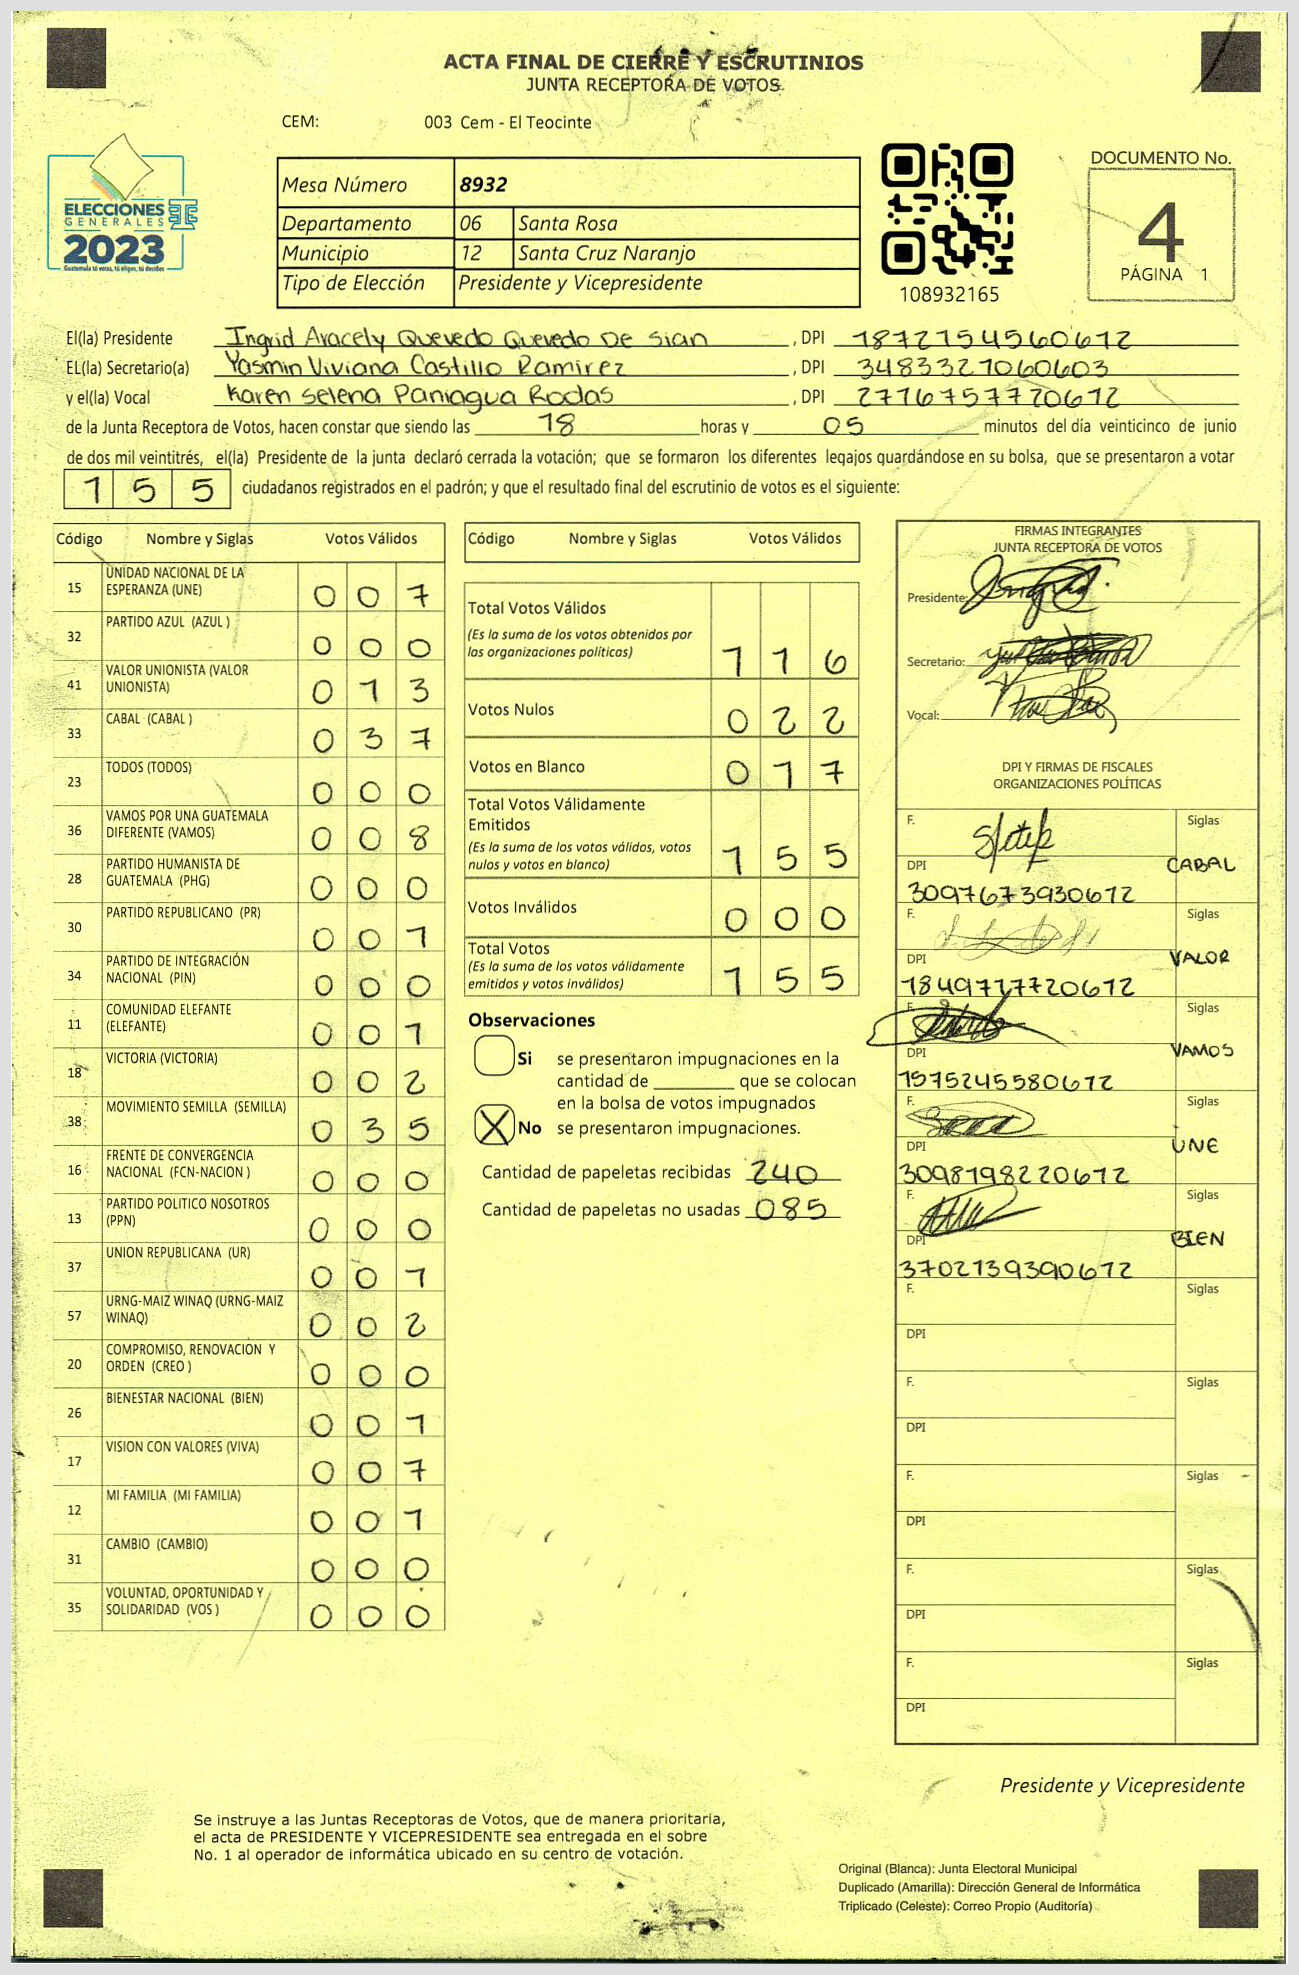 ACTA FINAL DE CIERRE Y ESCRUTINIOS
JUNTA RECEPTORA DE VOTOS
CEM: 003 Cem - El Teocinte
ELECCIONES
GENERALES
2023
Guatemala tú votas, tú eliges, tú decides
Mesa Número 8932
Departamento 06 Santa Rosa
Municipio 12 Santa Cruz Naranjo
Tipo de Elección Presidente y Vicepresidente
108932165
DOCUMENTO No.
4
PÁGINA 1
El(la) Presidente Ingrid Aracely Quevedo Quevedo De Sian , DPI 1872154560612
EL(la) Secretario(a) Yasmin Viviana Castillo Ramirez , DPI 3483327060603
y el(la) Vocal Karen Selena Paniagua Rodas , DPI 2776757720612
de la Junta Receptora de Votos, hacen constar que siendo las 18 horas y 05 minutos del día veinticinco de junio
de dos mil veintitrés, el(la) Presidente de la junta declaró cerrada la votación; que se formaron los diferentes legajos guardándose en su bolsa, que se presentaron a votar
155 ciudadanos registrados en el padrón; y que el resultado final del escrutinio de votos es el siguiente:
Código Nombre y Siglas Votos Válidos
15 UNIDAD NACIONAL DE LA ESPERANZA (UNE) 0 0 7
32 PARTIDO AZUL (AZUL ) 0 0 0
41 VALOR UNIONISTA (VALOR UNIONISTA) 0 1 3
33 CABAL (CABAL ) 0 3 7
23 TODOS (TODOS) 0 0 0
36 VAMOS POR UNA GUATEMALA DIFERENTE (VAMOS) 0 0 8
28 PARTIDO HUMANISTA DE GUATEMALA (PHG) 0 0 0
30 PARTIDO REPUBLICANO (PR) 0 0 1
34 PARTIDO DE INTEGRACIÓN NACIONAL (PIN) 0 0 0
11 COMUNIDAD ELEFANTE (ELEFANTE) 0 0 1
18 VICTORIA (VICTORIA) 0 0 2
38 MOVIMIENTO SEMILLA (SEMILLA) 0 3 5
16 FRENTE DE CONVERGENCIA NACIONAL (FCN-NACION ) 0 0 0
13 PARTIDO POLITICO NOSOTROS (PPN) 0 0 0
37 UNION REPUBLICANA (UR) 0 0 1
57 URNG-MAIZ WINAQ (URNG-MAIZ WINAQ) 0 0 2
20 COMPROMISO, RENOVACION Y ORDEN (CREO ) 0 0 0
26 BIENESTAR NACIONAL (BIEN) 0 0 1
17 VISION CON VALORES (VIVA) 0 0 7
12 MI FAMILIA (MI FAMILIA) 0 0 1
31 CAMBIO (CAMBIO) 0 0 0
35 VOLUNTAD, OPORTUNIDAD Y SOLIDARIDAD (VOS ) 0 0 0
Código Nombre y Siglas Votos Válidos
Total Votos Válidos
(Es la suma de los votos obtenidos por
las organizaciones políticas) 1 1 6
Votos Nulos 0 2 2
Votos en Blanco 0 1 7
Total Votos Válidamente
Emitidos
(Es la suma de los votos válidos, votos
nulos y votos en blanco) 1 5 5
Votos Inválidos 0 0 0
Total Votos
(Es la suma de los votos válidamente
emitidos y votos inválidos) 1 5 5
Observaciones
Si se presentaron impugnaciones en la
cantidad de ________ que se colocan
en la bolsa de votos impugnados
X No se presentaron impugnaciones.
Cantidad de papeletas recibidas 240
Cantidad de papeletas no usadas 085
FIRMAS INTEGRANTES
JUNTA RECEPTORA DE VOTOS
Presidente:
Secretario:
Vocal:
DPI Y FIRMAS DE FISCALES
ORGANIZACIONES POLÍTICAS
F. Siglas
DPI CABAL
3097673930612
F. Siglas
DPI VALOR
1849717720612
F. Siglas
DPI VAMOS
1575245580612
F. Siglas
DPI UNE
3098198220612
F. Siglas
DPI BIEN
3702139390612
F. Siglas
DPI
F. Siglas
DPI
F. Siglas
DPI
F. Siglas
DPI
F. Siglas
DPI
Presidente y Vicepresidente
Se instruye a las Juntas Receptoras de Votos, que de manera prioritaria,
el acta de PRESIDENTE Y VICEPRESIDENTE sea entregada en el sobre
No. 1 al operador de informática ubicado en su centro de votación.
Original (Blanca): Junta Electoral Municipal
Duplicado (Amarilla): Dirección General de Informática
Triplicado (Celeste): Correo Propio (Auditoría)